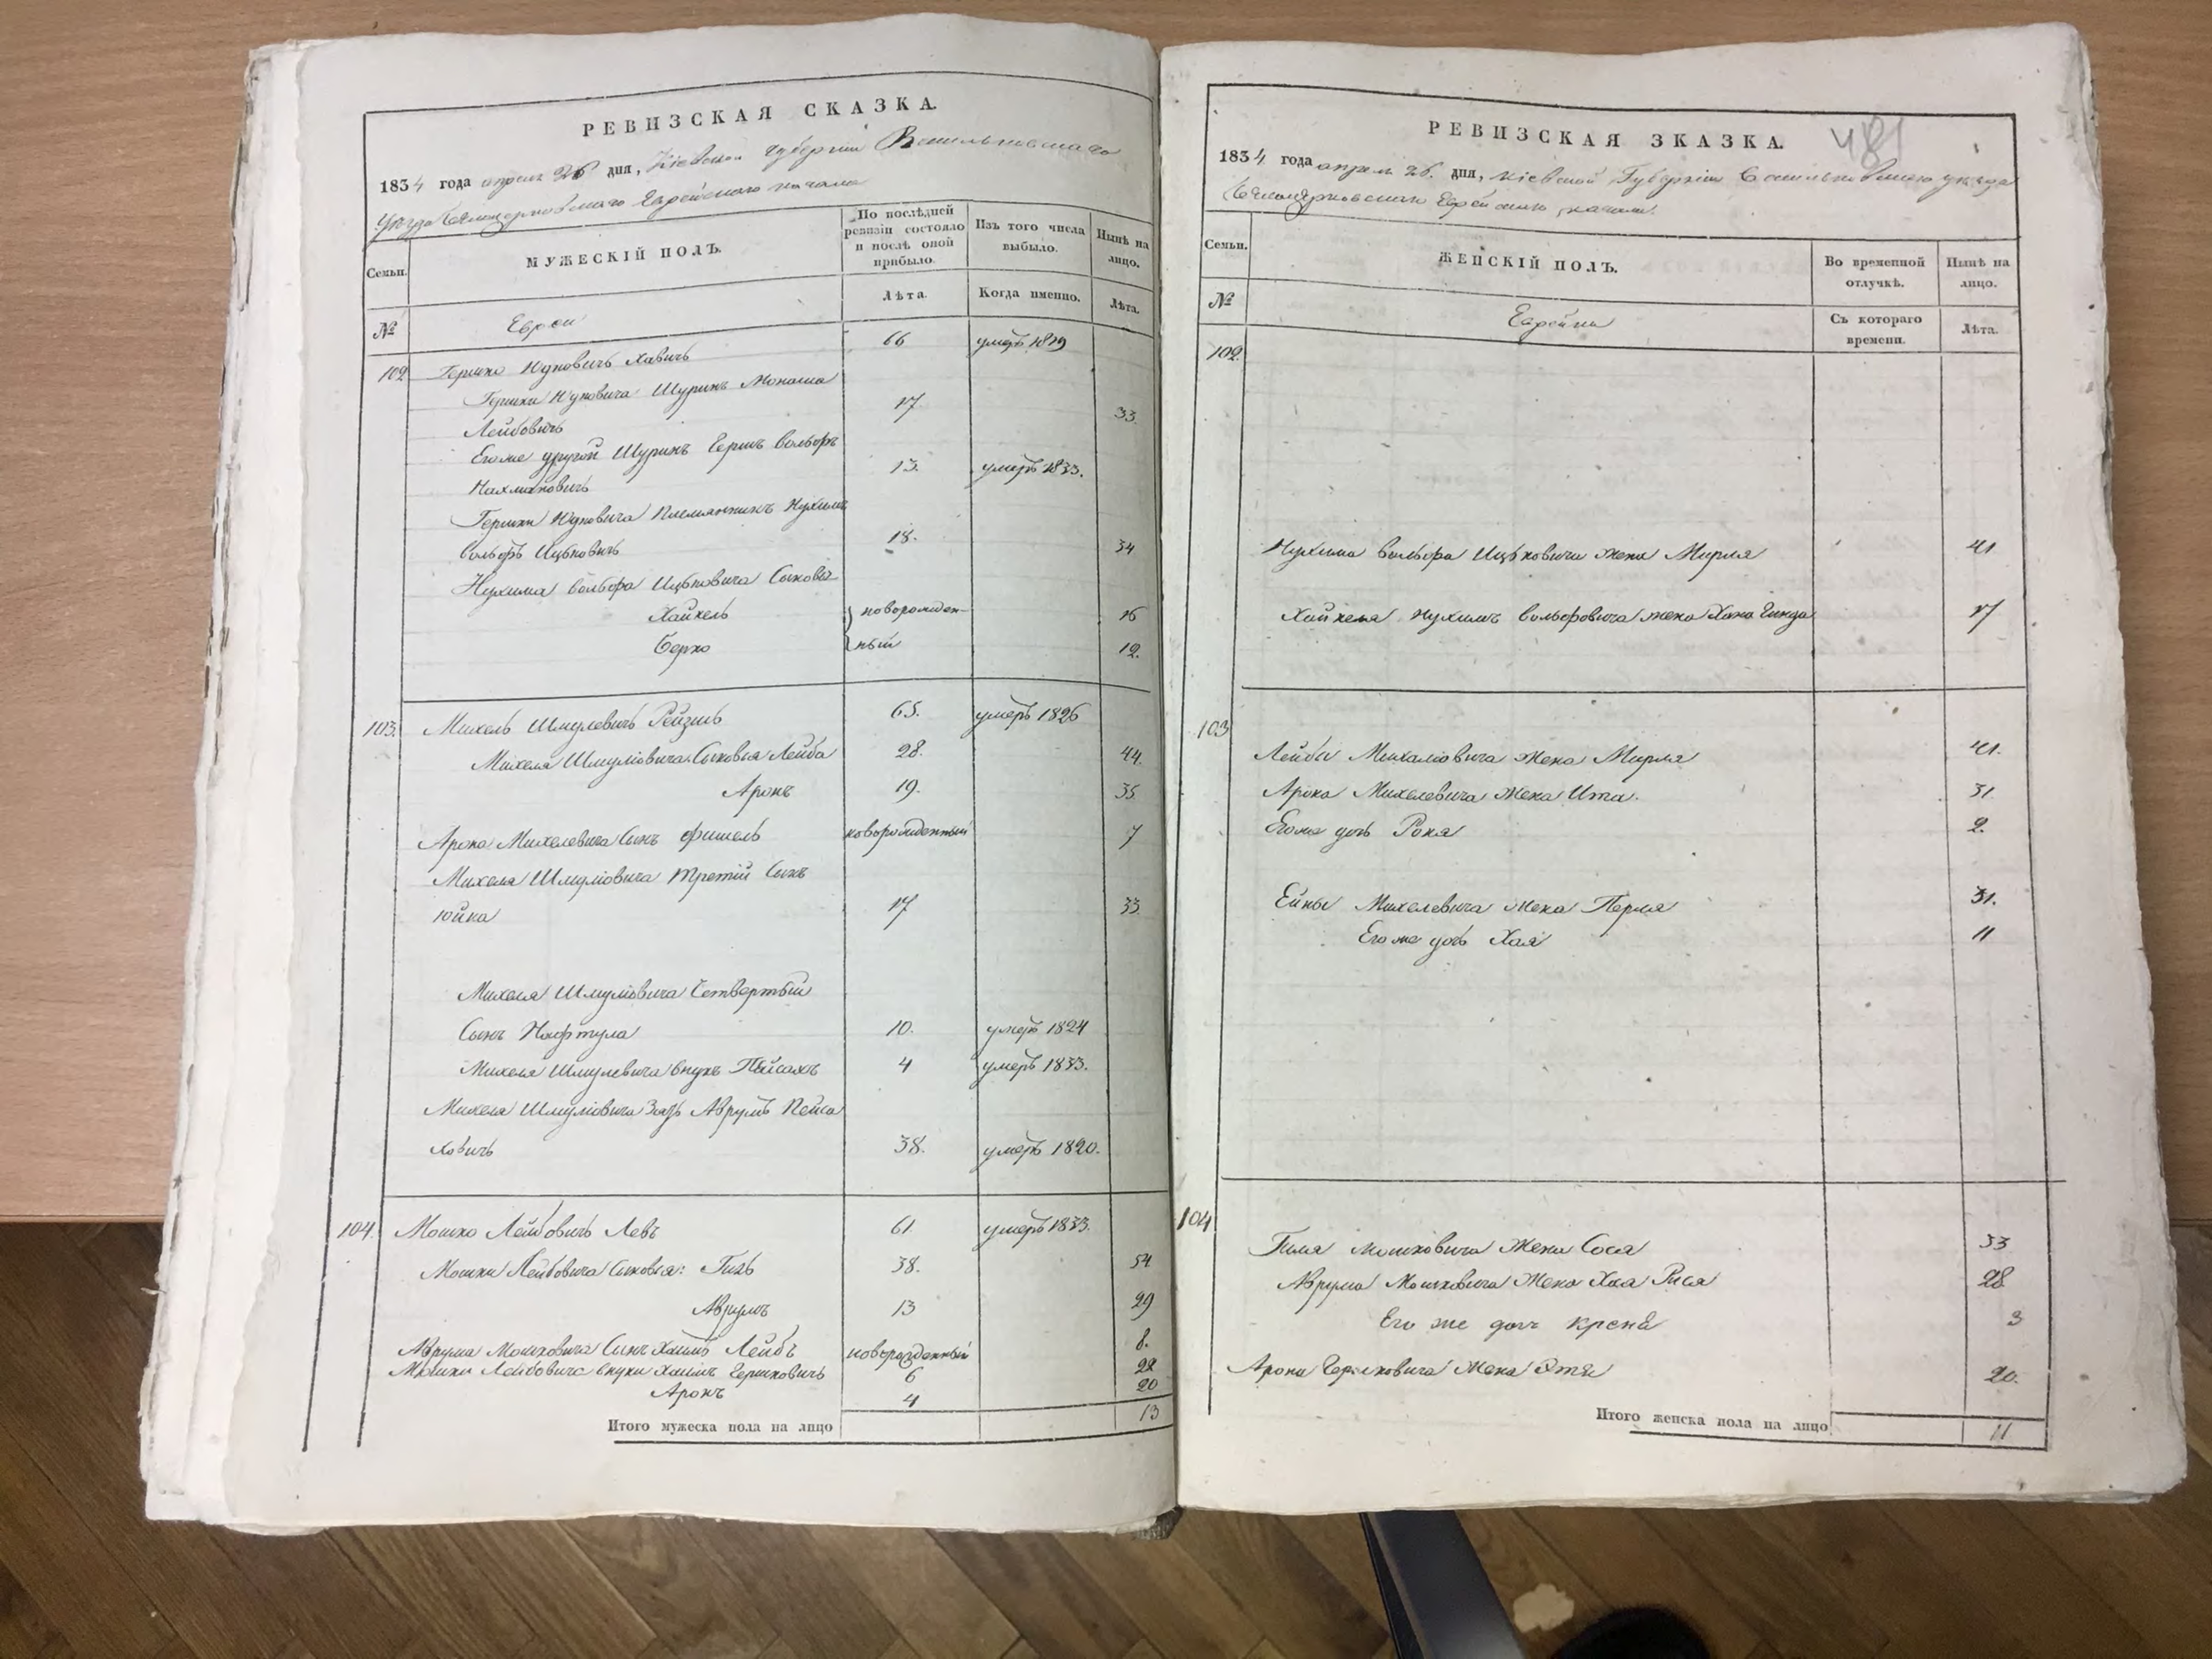 РЕВИЗСКАЯ СКАЗКА.
1834 года апреля 26 дня, Кіевской губерніи Васильковскаго
уезда Белоцерковскаго Еврейскаго кагала
Семьи.
МУЖЕСКІЙ ПОЛЪ.
По послѣдней ревизіи состояло и послѣ оной прибыло.
Изъ того числа выбыло.
Нынѣ на лицо.
№
Евреи
Лѣта.
Когда именно.
Лѣта.
102 Гершко Юдковичъ Хавичъ 66 умеръ 1819
Гершки Юдковича Шуринъ Монаша
Лейбовичъ 17. 33.
Его же другой Шуринъ Гершъ Вольфъ
Нахмановичъ 13. умеръ 1833.
Гершки Юдковича Племянникъ Нухимъ
Вольфъ Ицковичъ 18. 34
Нухима Вольфа Ицковича Сыновья
Хайкель новорожден- 16
Берко ный 12.
103. Михель Шмулевичъ Рейзисъ 65. умеръ 1826
Михеля Шмуліовича Сыновья Лейба 28. 44.
Аронъ 19. 35.
Арона Михелевича Сынъ Фишель новорожденный 7
Михеля Шмуліовича третій Сынъ
Юйна 17 33.
Михеля Шмуліовича Четвертый
Сынъ Нафтула 10. умеръ 1824
Михеля Шмулевича внукъ Пейсахъ 4 умеръ 1833.
Михеля Шмуліовича Зять Аврумъ Пейса
ховичъ 38. умеръ 1820.
104. Мошко Лейбовичъ Левъ 61. умеръ 1833.
Мошки Лейбовича Сыновья: Гиль 38. 54
Аврумъ 13 29
Аврума Мошковича Сынъ Хаимъ Лейбъ новорожденный 8.
Мошки Лейбовича внуки Хаимъ Гершковичъ 6 22
Аронъ 4 20
Итого мужеска пола на лицо 13
481
РЕВИЗСКАЯ ЗКАЗКА.
1834 года апреля 26. дня, Кіевской Губерніи Васильковскаго уезда
Белоцерковскаго Еврейскаго кагала.
Семьи.
ЖЕНСКІЙ ПОЛЪ.
Во временной отлучкѣ.
Нынѣ на лицо.
№
Еврейки
Съ котораго времени.
Лѣта.
102.
Нухима Вольфа Ицковича жена Мирля 41
Хайкеля Нухимъ Вольфовича жена Хана Гинда 17
103
Лейбы Михаліовича Жена Мирля 41.
Арона Михелевича Жена Ита. 31.
Его же дочь Роня 2.
Ейны Михелевича жена Перля 31.
Его же дочь Хая 11
104
Гиля Мошковича Жена Сося 33
Аврума Мошковича Жена Хая Рися 28
Его же дочь Крена 3
Арона Гершковича Жена Этя 20.
Итого женска пола на лицо 11